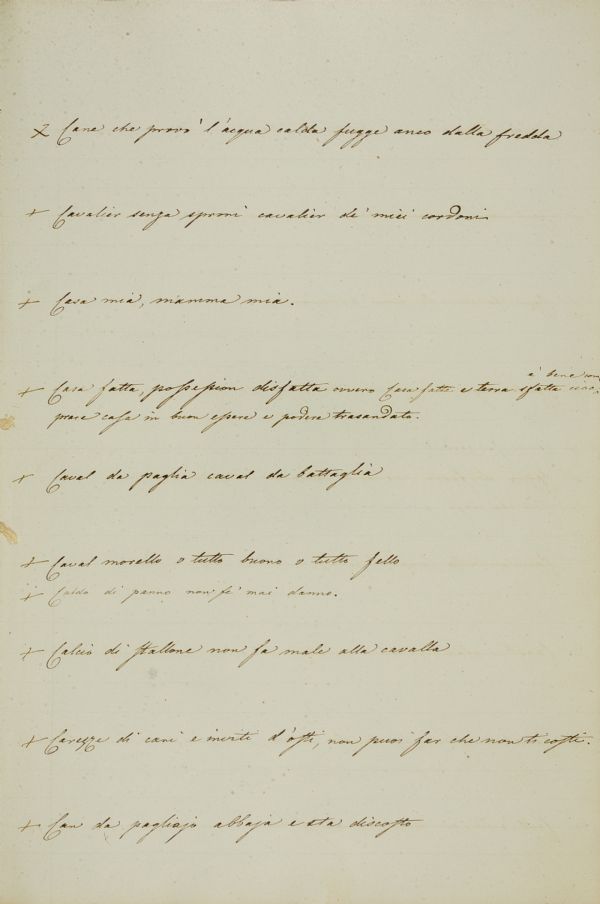 x Cane che provò l'acqua calda fugge anco dalla fredda
+ Cavalier senza sproni cavalier de' miei cordoni
+ Casa mia, mamma mia.
+ Casa fatta, possession disfatta ovvero Casa fatta e terra sfatta cioè è bene com
prare casa in buon essere e podere trasandato.
+ Caval da paglia caval da battaglia
+ Caval morello o tutto buono o tutto fello
+ Caldo di panno non fe' mai danno.
+ Calcio di stallone non fa male alla cavalla
+ Carezze di cani e inviti d'osti, non puoi far che non ti costi.
+ Can da pagliajo abbaja e sta discosto